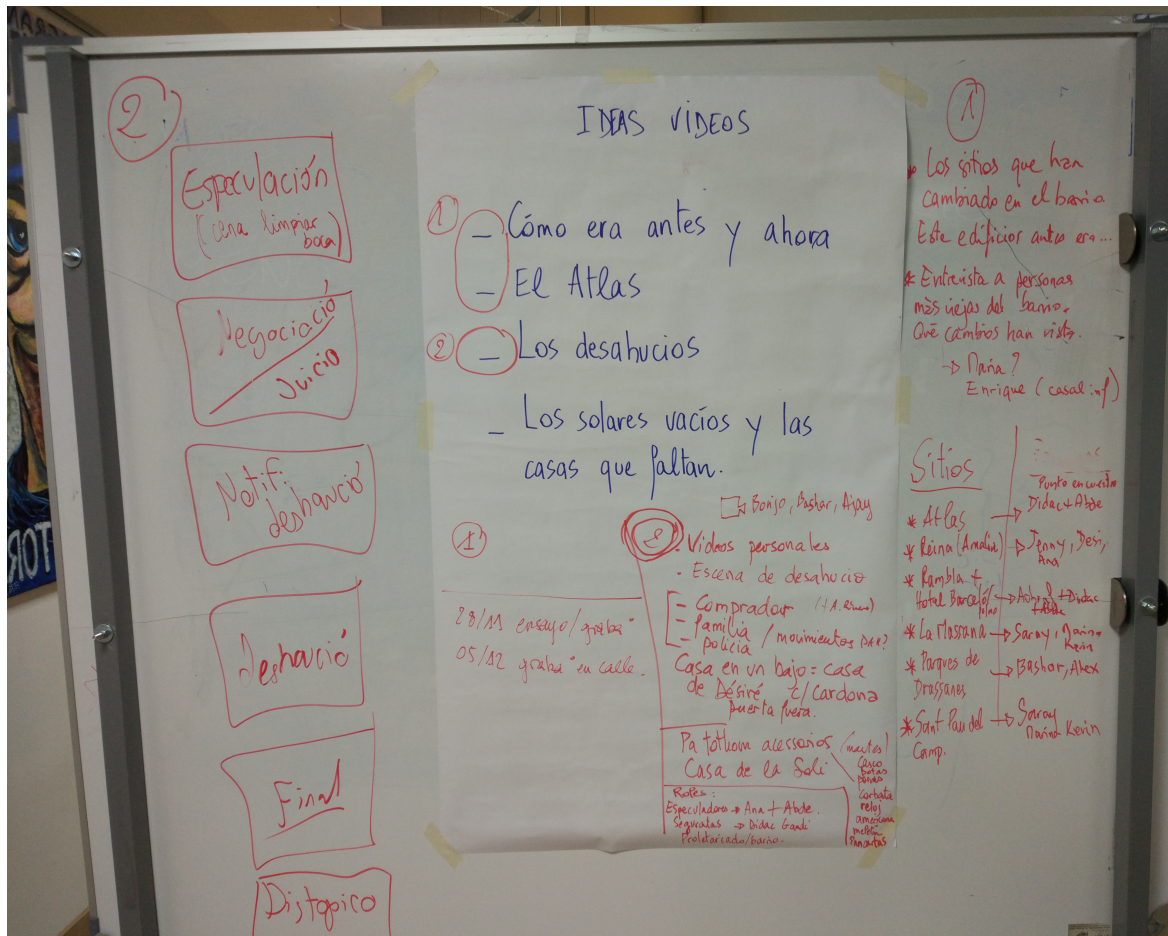 2
Especulación
(cena limpiar
boca)
Negociació
Juicio
Notif.
deshaució
Deshaució
Final
Distopico
IDEAS VIDEOS
1 – Cómo era antes y ahora
– El Atlas
2 – Los desahucios
– Los solares vacíos y las
casas que faltan.
Bonjo, Bashar, Ajay
1
28/11 ensayo/graba
05/12 graba en calle.
2
- Videos personales
- Escena de desahucio
– Comprador
– familia
– policía / movimientos
Casa en un bajo = casa
de Désiré c/Cardona
puerta fuera.
Pa tothom accessorios (martes)
Casa de la Soli
Casco
botas
corbata
reloj
americana
Pancartas
Roles:
Especuladores → Ana + Abde.
Seguratas → Didac
Proletariado/barrio.
1
* Los sitios que han
cambiado en el barrio
Este edificior antes era...
* Entrevista a personas
más viejas del barrio.
Qué cambios han visto.
→ Maria?
Enrique (casal inf)
Sitios
Punto encuentro
* Atlas → Didac + Abde
* Reina (Amalia) → Jenny, Desi,
Ana
* Rambla +
Hotel Barceló → + Didac
* La Massana → Saray, Marina
Kevin
* Parques de → Bashar, Alex
Drassanes
* Sant Pau del → Saray
Camp. Marina Kevin
TOR